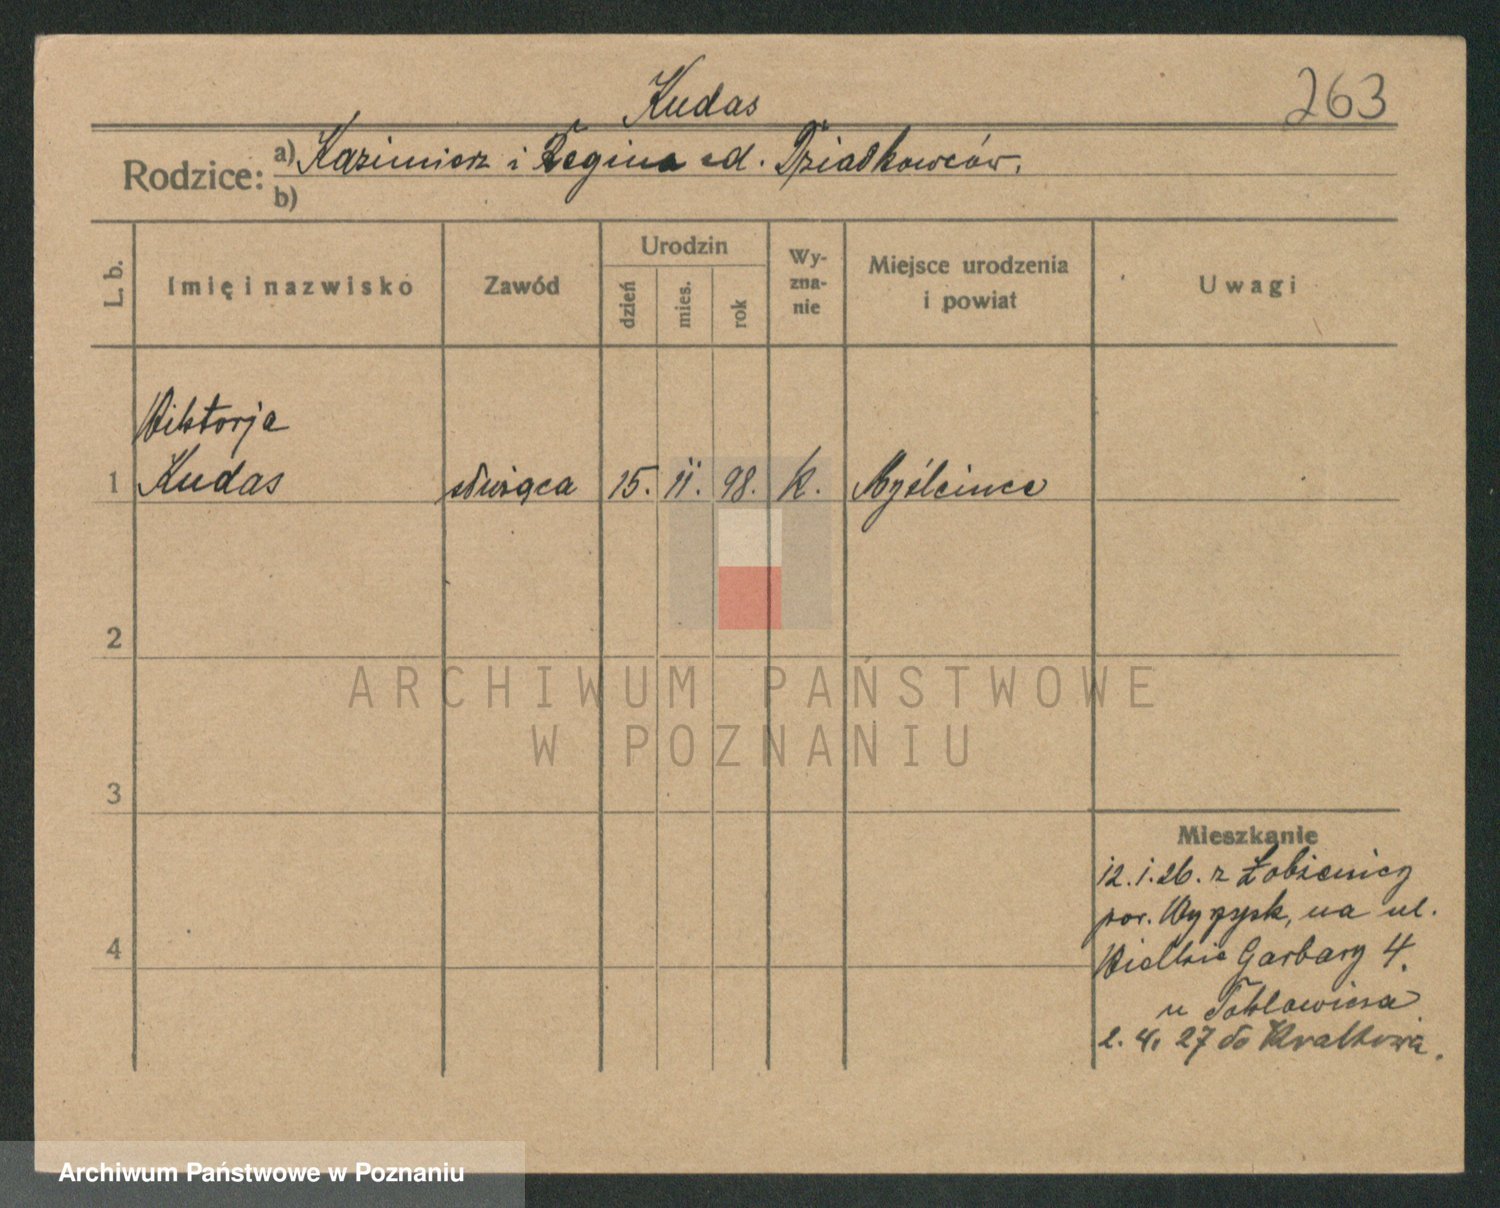 Kudas
263
Rodzice:
a) Kazimierz i Regina od. Dziadkowców.
b)
L. b.
Imię i nazwisko
Zawód
Urodzin
dzień
mies.
rok
Wy-
zna-
nie
Miejsce urodzenia
i powiat
Uwagi
Wiktorja
1 Kudas służąca 15. 11. 98. k. Myślcince
2
3
4
Mieszkanie
12.1.26. z Łobżenicy
pow. Wyrzysk, na ul.
Wielkie Garbary 4.
u
2. 4. 27 do
ARCHIWUM PAŃSTWOWE
W POZNANIU
Archiwum Państwowe w Poznaniu